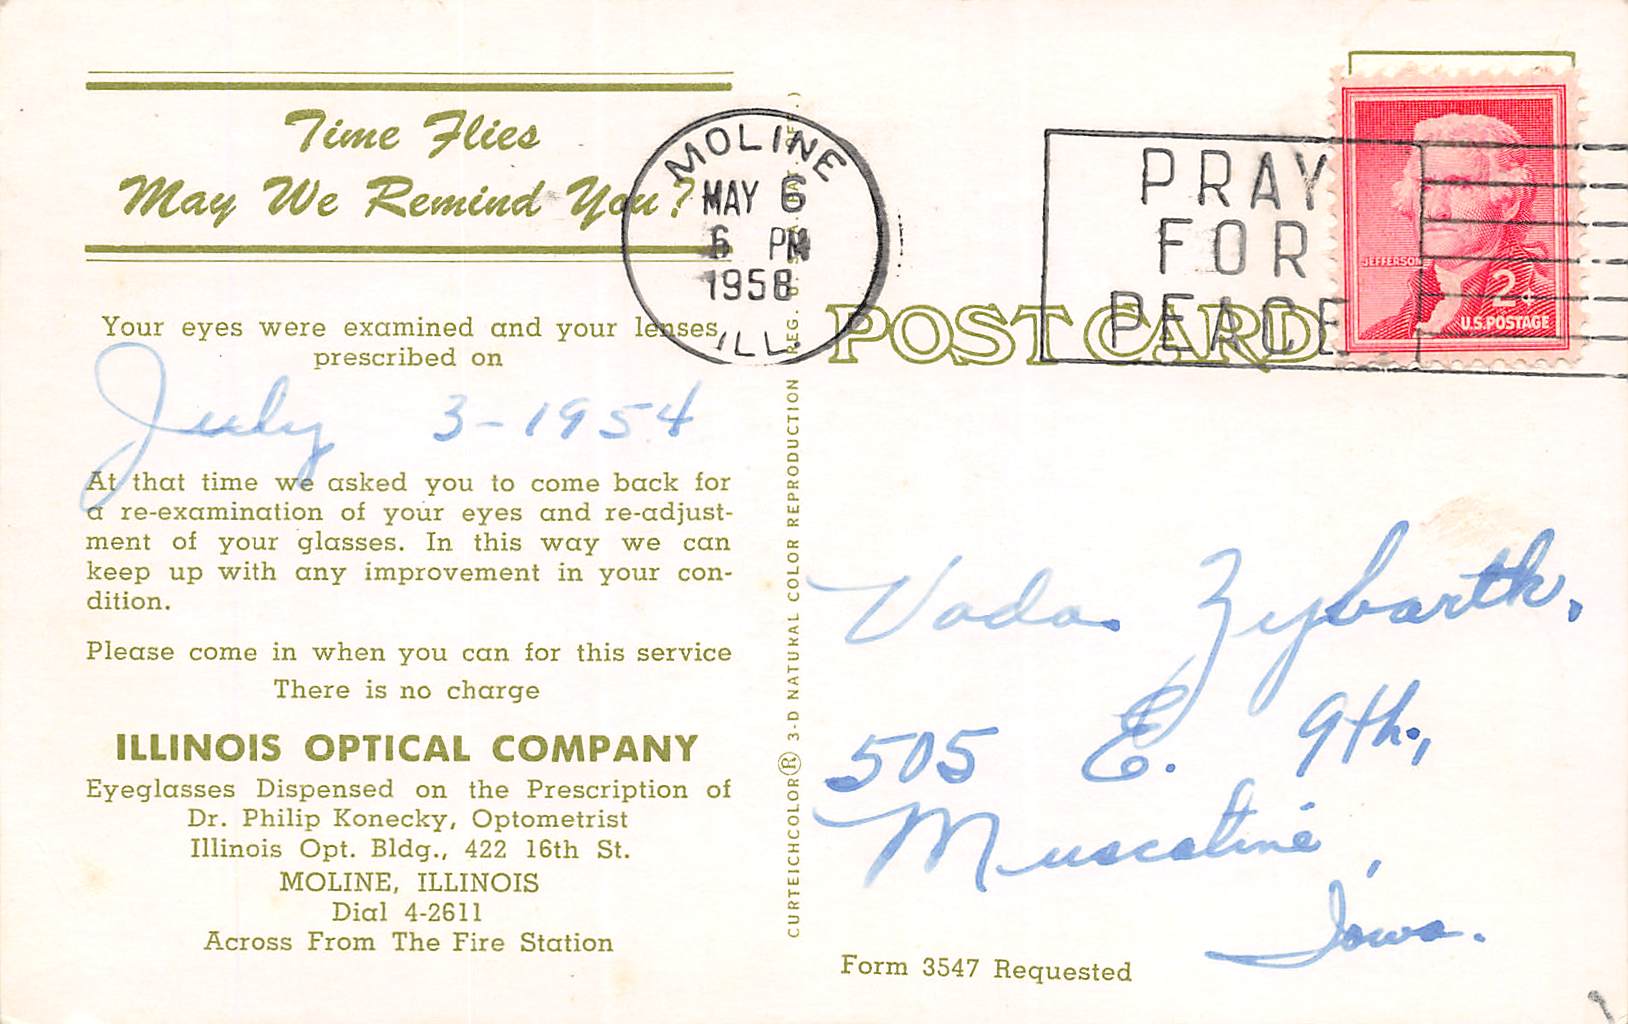 Time Flies
May We Remind You?
Your eyes were examined and your lenses
prescribed on
July 3-1954
At that time we asked you to come back for
a re-examination of your eyes and re-adjust-
ment of your glasses. In this way we can
keep up with any improvement in your con-
dition.
Please come in when you can for this service
There is no charge
ILLINOIS OPTICAL COMPANY
Eyeglasses Dispensed on the Prescription of
Dr. Philip Konecky, Optometrist
Illinois Opt. Bldg., 422 16th St.
MOLINE, ILLINOIS
Dial 4-2611
Across From The Fire Station
CURTEICHCOLOR® 3-D NATURAL COLOR REPRODUCTION
MOLINE
MAY 6
6 PM
1958
ILL.
POST CARD
PRAY
FOR
PEACE
JEFFERSON
2¢
U.S. POSTAGE
Vada Zybarth.
505 E. 9th.,
Muscatine,
Iowa.
Form 3547 Requested